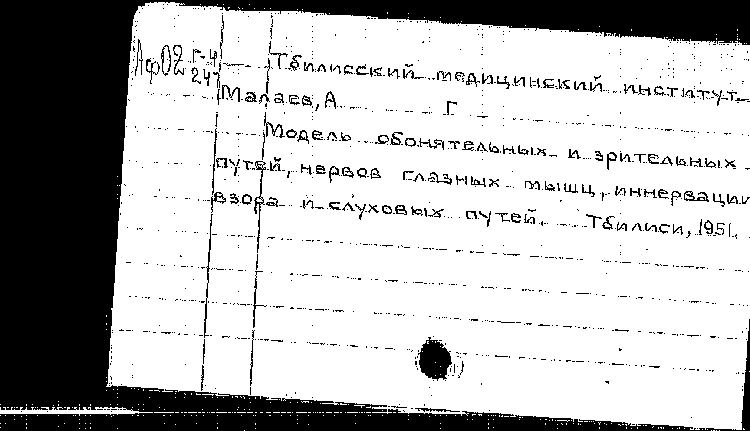 АфО2 Г-4 Тбилисский медицинский институт.
247
Малаев, А Г
Модель обонятельных и зрительных
путей, нервов глазных мышц, иннервации
взора и слуховых путей. Тбилиси, 1951.